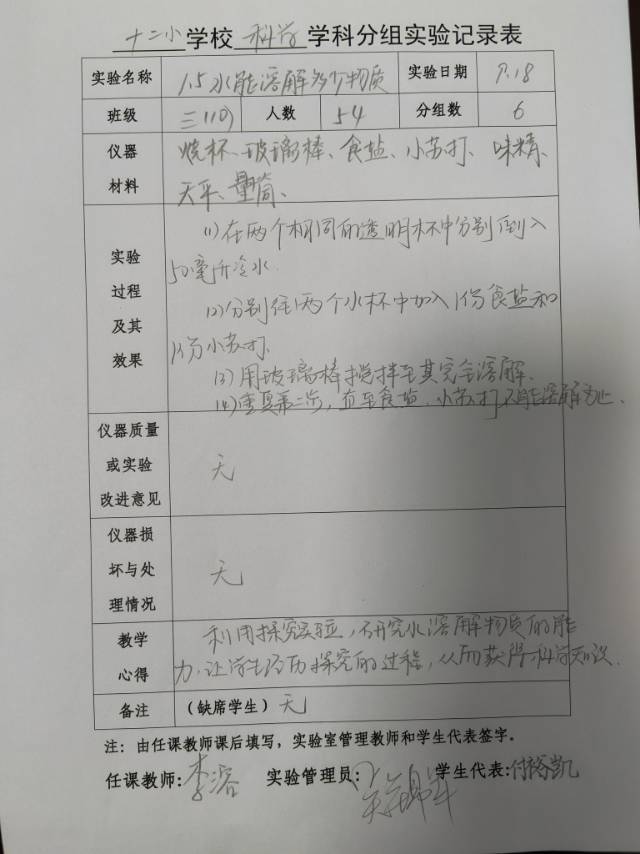 十二小学校 科学 学科分组实验记录表
实验名称 1.5水能溶解多少物质 实验日期 9.18
班级 三(10) 人数 54 分组数 6
仪器材料 烧杯、玻璃棒、食盐、小苏打、味精、
天平、量筒、
实验过程及其效果 (1)在两个相同的透明杯中分别倒入
50毫升冷水.
(2)分别往两个水杯中加入1份食盐和
1份小苏打.
(3)用玻璃棒搅拌至其完全溶解.
(4)重复第二步,直至食盐、小苏打不能溶解为止.
仪器质量或实验改进意见 无
仪器损坏与处理情况 无
教学心得 利用探究实验,研究水溶解物质的能
力,让学生经历探究的过程,从而获得科学知识.
备注 (缺席学生) 无
注:由任课教师课后填写,实验室管理教师和学生代表签字。
任课教师:李溶 实验管理员: 学生代表:付裕凯